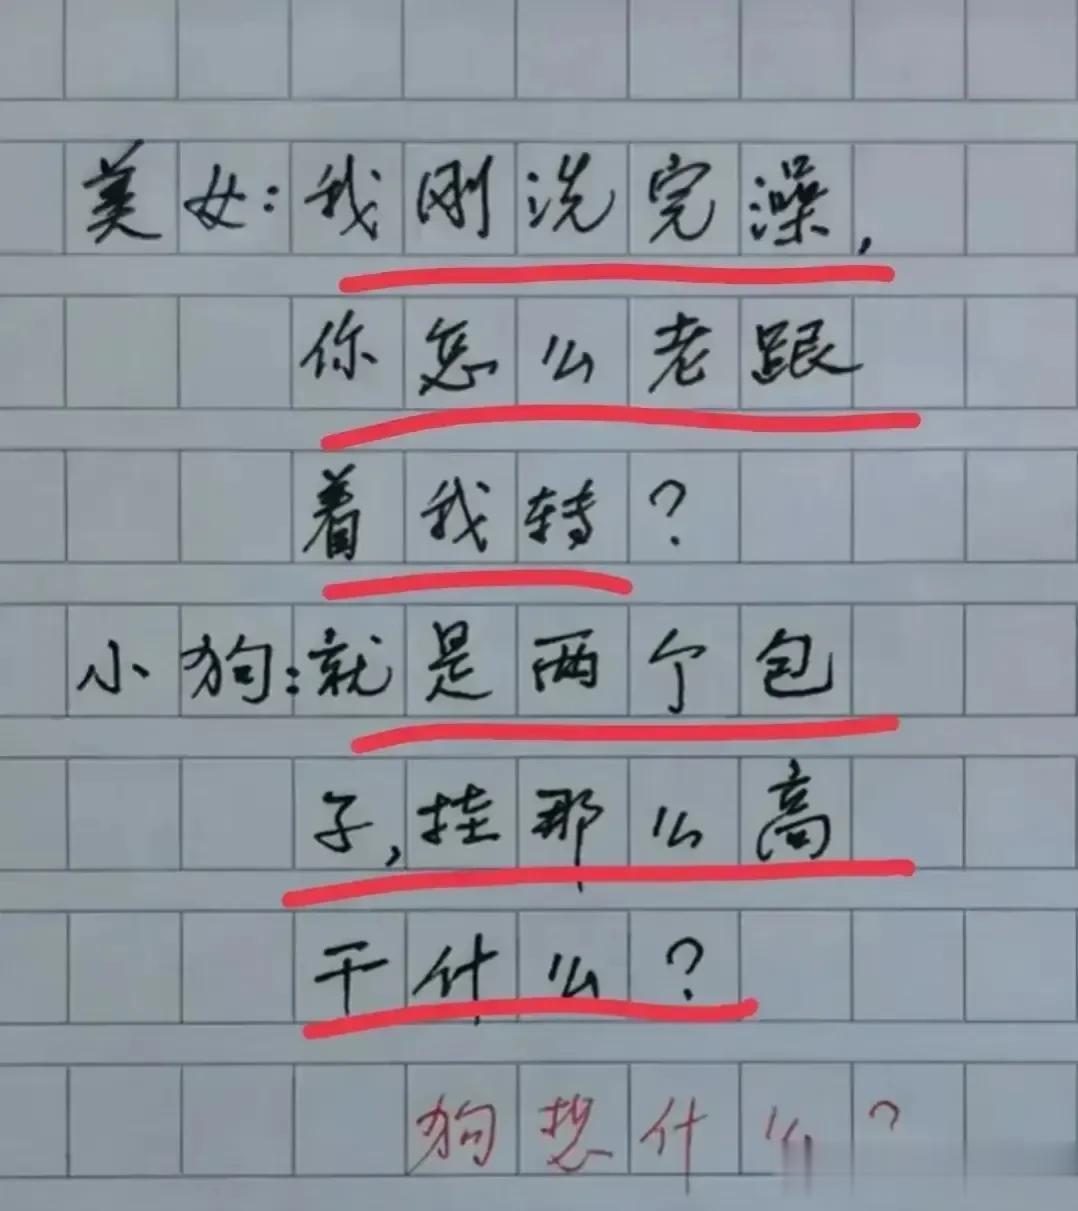 美女:我刚洗完澡,
你怎么老跟
着我转?
小狗:就是两个包
子,挂那么高
干什么?
狗想什么?